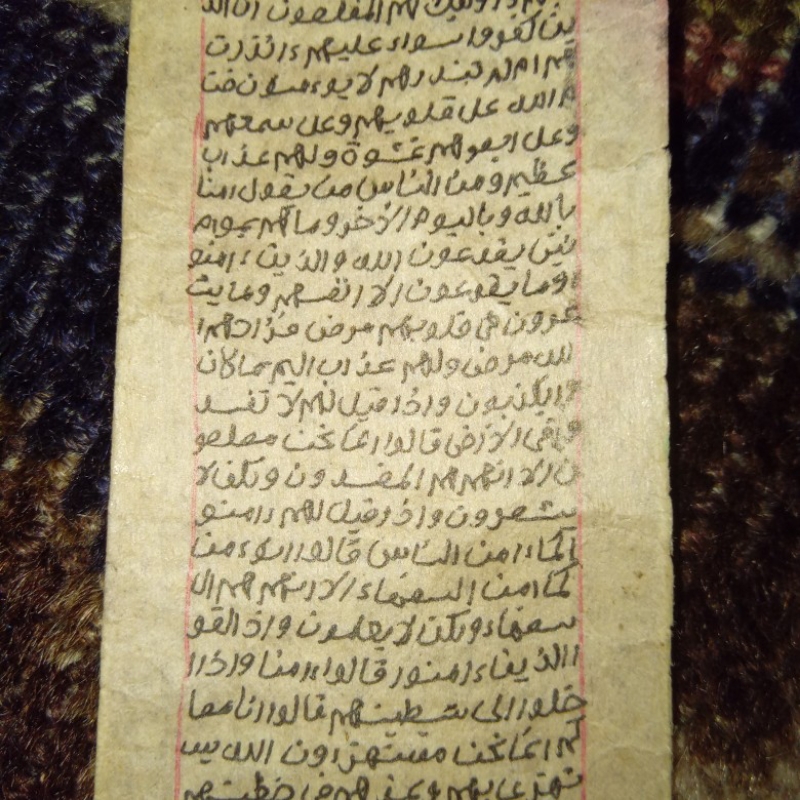 هم المفلحون ان الذ
ين كفروا سواء عليهم ءانذرت
هم ام لم تنذرهم لا يوءمنون خت
م الله على قلوبهم وعلى سمعهم
وعلى ابصرهم غشوة ولهم عذاب
عظيم ومن الناس من يقول امنا
بالله وباليوم الاخر وما هم بموم
نين يخدعون الله والذين ءامنو
ا وما يخدعون الا انفسهم وما يش
عرون في قلوبهم مرض فزادهم ا
لله مرض ولهم عذاب اليم بما كان
وا يكذبون واذا قيل لهم لا تفسد
وا في الارض قالوا انما نحن مصلحو
ن الا انهم هم المفسدون ولكن لا
يشعرون واذا قيل لهم ءامنو
ا كما ءامن الناس قالوا انوءمن
كما امن السفهاء الا انهم هم ال
سفهاء ولكن لا يعلمون واذا لقو
ا الذين ءامنوا قالوا ءامنا واذا
خلوا الى شيطينهم قالوا انا معا
كم انما نحن مستهزءون الله يس
تهزئ بهم ويمدهم في طغينهم